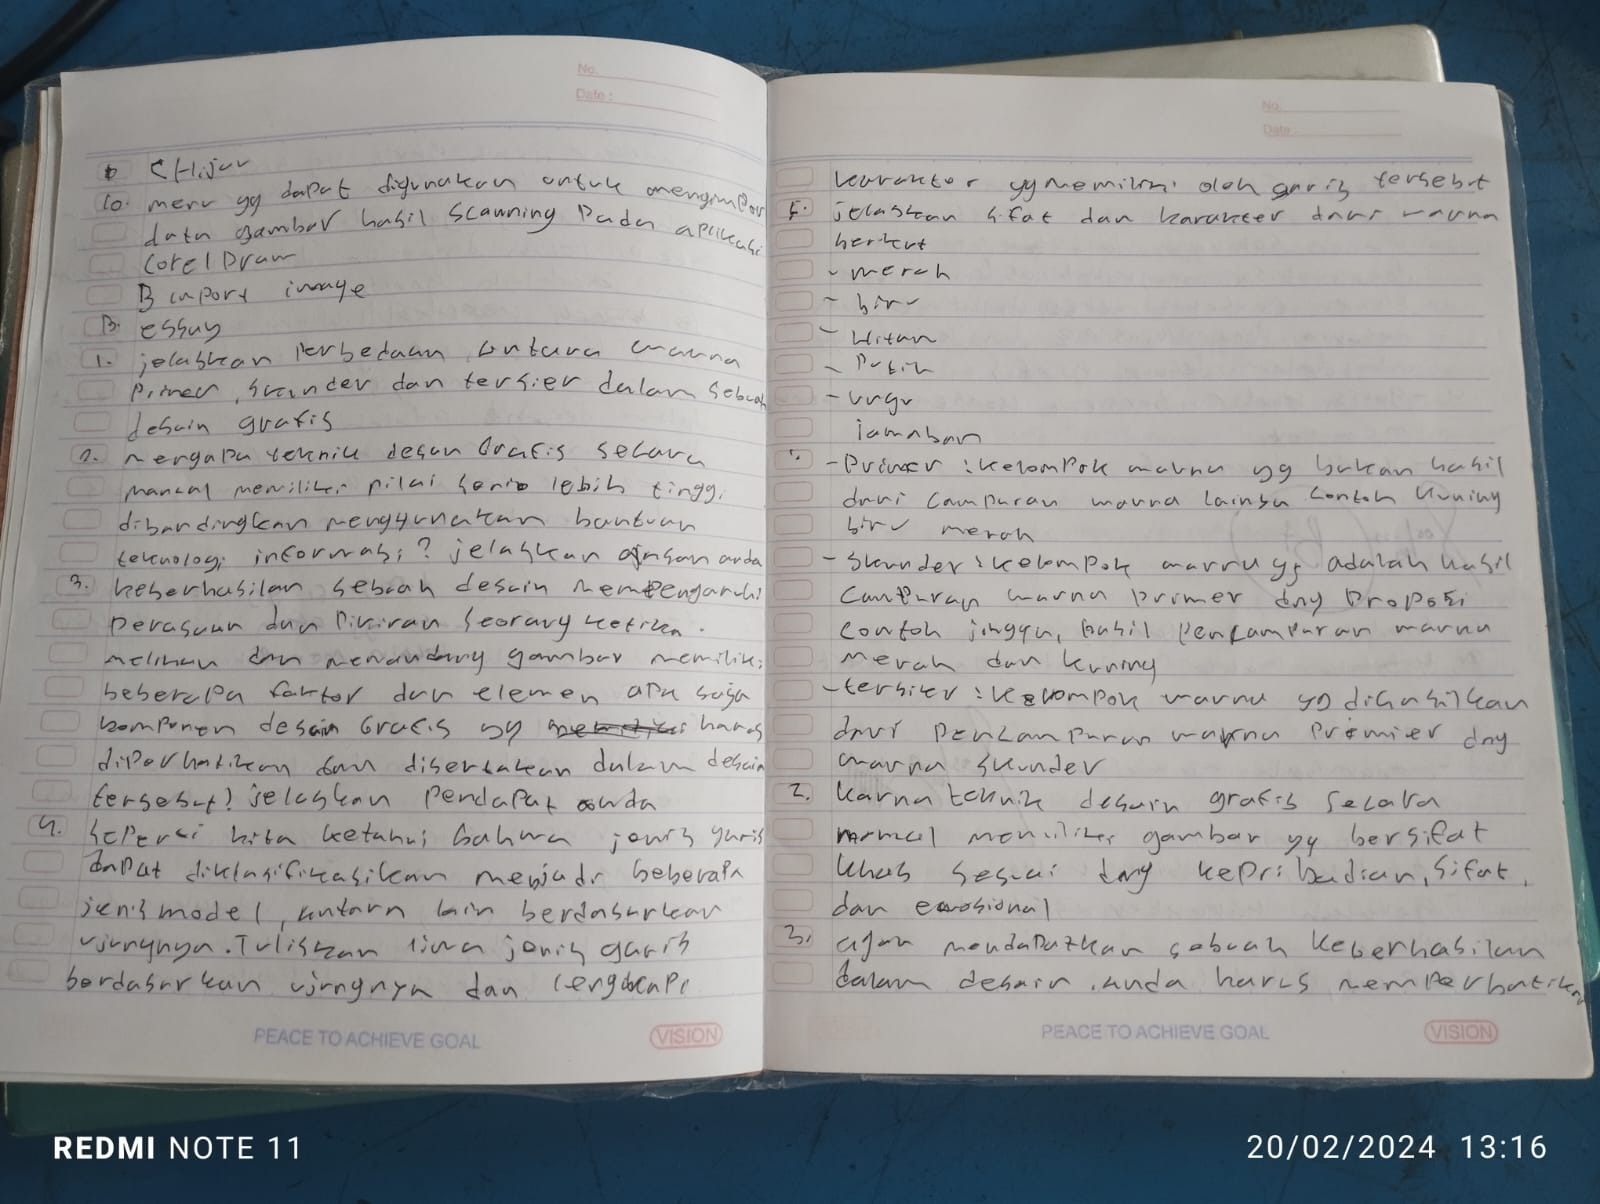 No.
Date :
C Hijau
10. menu yg dapat digunakan untuk mengimpor
data gambar hasil scanning Pada aplikasi
Corel Draw
B import image
B. essay
1. jelaskan Perbedaan antara warna
Primer, skunder dan tersier dalam sebuah
desain grafis
2. mengapa teknik desain Grafis secara
manual memiliki nilai seni lebih tinggi
dibandingkan menggunakan bantuan
teknologi informasi? jelaskan anda
3. keberhasilan sebuah desain mempengaruhi
Perasaan dan Pikiran Seorang ketika
melihan dan memandang gambar memiliki
beberapa faktor dan elemen apa saja
komponen desain Grafis yg harus
diperhatikan dan disertakan dalam desain
tersebut? jelaskan Pendapat anda
4. Seperti kita ketahui bahwa jenis garis
dapat diklasifikasikan menjadi beberapa
jenis model, antara lain berdasarkan
ujungnya. Tuliskan lima jenis garis
berdasarkan ujungnya dan lengkapi
PEACE TO ACHIEVE GOAL
VISION
No.
Date :
karakter yg memiliki oleh garis tersebut
5. jelaskan sifat dan karakter dari warna
berikut
- merah
- biru
- Hitam
- Putih
- ungu
jamaban
- Primer : kelompok warna yg bukan hasil
dari campuran warna lainya contoh kuning
biru merah
- Skunder : kelompok warna yg adalah hasil
campuran warna primer dng Proposi
contoh jingga, hasil Pencampuran warna
merah dan kuning
- tersier : kelompok warna yg dihasilkan
dari Pencampuran warna Premier dng
warna skunder
2. karna teknik desain grafis secara
manual memiliki gambar yg bersifat
khas sesuai dng kepribadian, sifat,
dan emosional
3. agar mendapatkan sebuah keberhasilan
dalam desain. anda harus memperhatikan
PEACE TO ACHIEVE GOAL
VISION
REDMI NOTE 11
20/02/2024 13:16